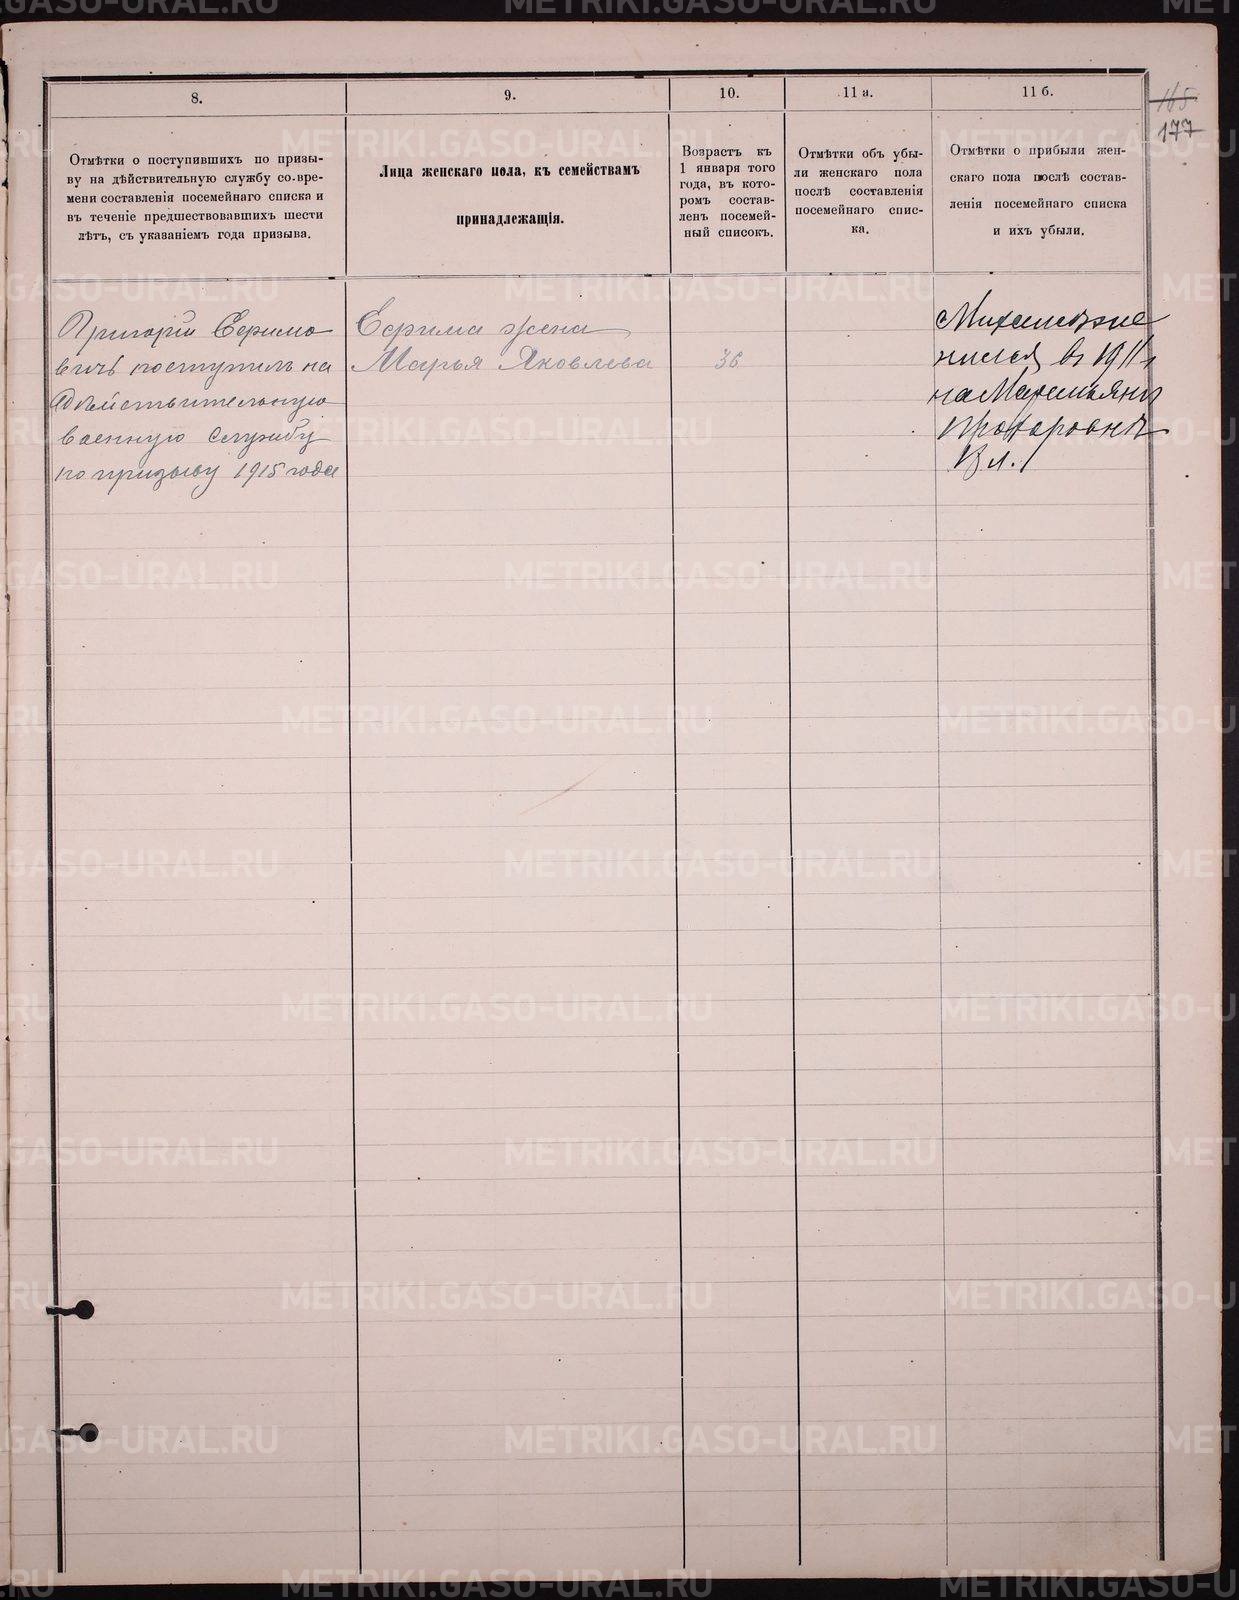 8.
9.
10.
11 а.
11 б.
165
177
Отмѣтки о поступившихъ по призы-
ву на дѣйствительную службу со.вре-
мени составленія посемейнаго списка и
въ теченіе предшествовавшихъ шести
лѣтъ, съ указаніемъ года призыва.
Лица женскаго пола, къ семействамъ
принадлежащія.
Возрастъ къ
1 января того
года, въ кото-
ромъ состав-
ленъ посемей-
ный списокъ.
Отмѣтки объ убы-
ли женскаго пола
послѣ составленія
посемейнаго спис-
ка.
Отмѣтки о прибыли жен-
скаго пола послѣ состав-
ленія посемейнаго списка
и ихъ убыли.
Григорій
вичъ поступилъ на
дѣйствительную
военную службу
по призыву 1915 года
жена
Марья Яковлева
36
Михаилъ же
нился въ 1911 г
на
Прохоровнѣ
METRIKI.GASO-URAL.RU